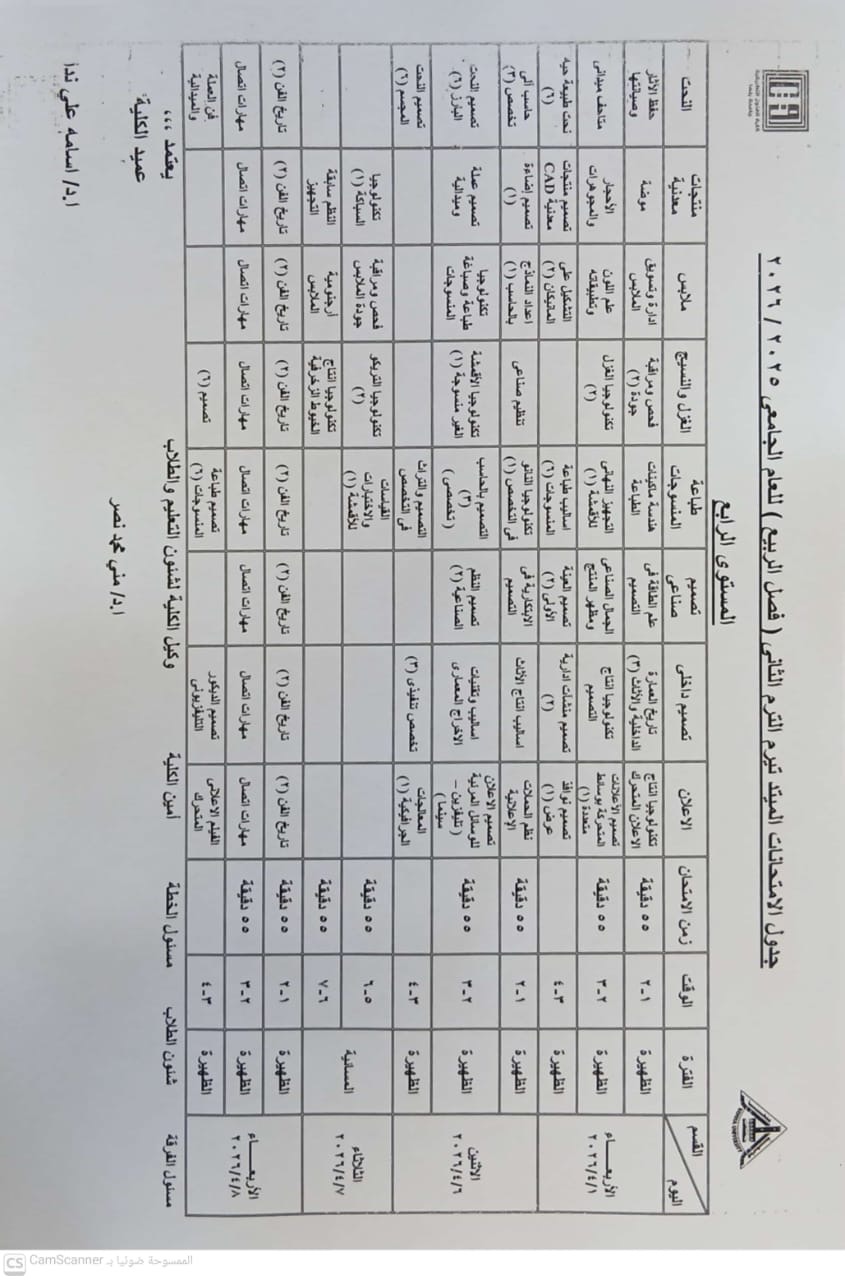 جدول الامتحانات الميد تيرم الترم الثانى ( فصل الربيع ) للعام الجامعى ٢٠٢٥ / ٢٠٢٦
المستوى الرابع
القسم
اليوم
الفترة
الوقت
زمن الامتحان
الاعلان
تصميم داخلى
تصميم صناعى
طباعة المنسوجات
الغزل والنسيج
ملابس
منتجات معدنية
النحت
الأربعـــاء
٢٠٢٦/٤/١
الظهيرة
١-٢
٥٥ دقيقة
تكنولوجيا انتاج الاعلان المتحرك
تاريخ العمارة الداخلية والأثاث (٣)
علم الطاقة فى التصميم
هندسة ماكينات الطباعة
فحص ومراقبة جودة (٢)
ادارة وتسويق الملابس
موضة
حفظ الآثار وصيانتها
الظهيرة
٢-٣
٥٥ دقيقة
تصميم الأعلانات المتحركة بوسائط متعددة (١)
تكنولوجيا انتاج التصميم
الجمال الصناعى ومظهر المنتج
التجهيز النهائى للأقمشة (١)
تكنولوجيا الغزل (٢)
علم اللون وتطبيقاته
الأحجار والمجوهرات
متاحف ميدانى
الظهيرة
٣-٤
تصميم نوافذ عرض (١)
تصميم منشات ادارية (٢)
تصميم العينة الأولى (٢)
اساليب طباعة المنسوجات (٦)
التشكيل على المانيكان (٢)
تصميم منتجات معدنية CAD
نحت طبيعة حيه (٦)
الاثنين
٢٠٢٦/٤/٦
الظهيرة
١-٢
٥٥ دقيقة
نظم الحملات الإعلانية
اساليب انتاج الأثاث
الابتكارية فى التصميم
تكنولوجيا النانو فى التخصص (١)
تنظيم صناعى
اعداد النماذج بالحاسب (١)
تصميم إضاءة (١)
حاسب ألى تخصص (٣)
الظهيرة
٢-٣
٥٥ دقيقة
تصميم الاعلان للوسائل المرئية ( تليفزين – سينما )
اساليب وتقنيات الاخراج المعمارى
تصميم النظم الصناعية (٢)
التصميم بالحاسب (٣) ( تخصصى )
تكنولوجيا الأقمشة الغير منسوجة (١)
تكنولوجيا طباعة وصباغة المنسوجات
تصميم عملة وميدالية
تصميم النحت البارز (٦)
الظهيرة
٣-٤
المعالجات الجرافيكية (١)
تخصص تنفيذى (٣)
التصميم والتراث فى التخصص
تصميم النحت المجسم (٦)
الثلاثاء
٢٠٢٦/٤/٧
المسائية
٥-٦
٥٥ دقيقة
القياسات والاختبارات للأقمشة (١)
تكنولوجيا التريكو (٢)
فحص ومراقبة جودة الملابس
تكنولوجيا السباكة (١)
٦-٧
٥٥ دقيقة
تكنولوجيا انتاج الخيوط الزخرفية
أرجنومية الملابس
النظم سابقة التجهيز
الأربعـــاء
٢٠٢٦/٤/٨
الظهيرة
١-٢
٥٥ دقيقة
تاريخ الفن (٢)
تاريخ الفن (٢)
تاريخ الفن (٢)
تاريخ الفن (٢)
تاريخ الفن (٢)
تاريخ الفن (٢)
تاريخ الفن (٢)
تاريخ الفن (٢)
الظهيرة
٢-٣
٥٥ دقيقة
مهارات اتصال
مهارات اتصال
مهارات اتصال
مهارات اتصال
مهارات اتصال
مهارات اتصال
مهارات اتصال
مهارات اتصال
الظهيرة
٣-٤
الفيلم الاعلانى المتحرك
تصميم الديكور التليفزيونى
تصميم طباعة المنسوجات (٦)
تصميم (٦)
فن العملة والميدالية
مسئول الفرقة
شئون الطلاب
مسئول الخطة
أمين الكلية
وكيل الكلية لشئون التعليم والطلاب
يعتمد ،،،
عميد الكلية
ا.د/ منى محمد نصر
ا.د/ اسامه على ندا
CS CamScanner الممسوحة ضوئيا بـ